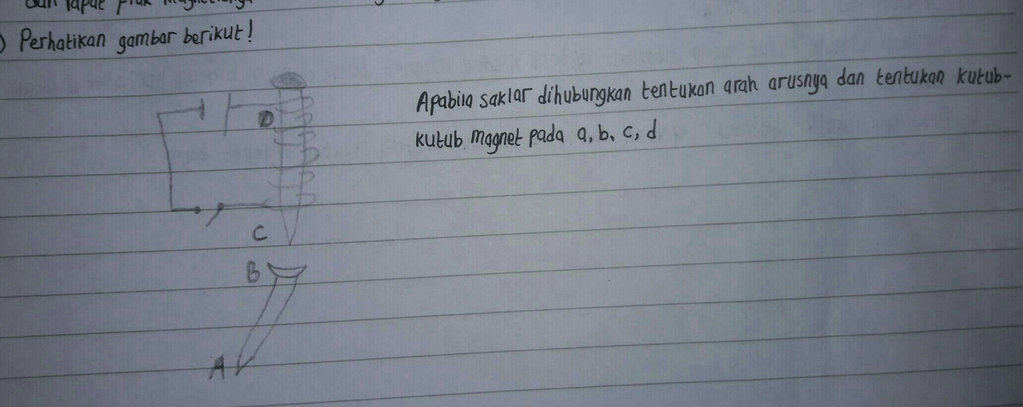 dan
) Perhatikan gambar berikut!
Apabila saklar dihubungkan tentukan arah arusnya dan tentukan kutub-
kutub magnet pada a, b, c, d
D
C
B
A